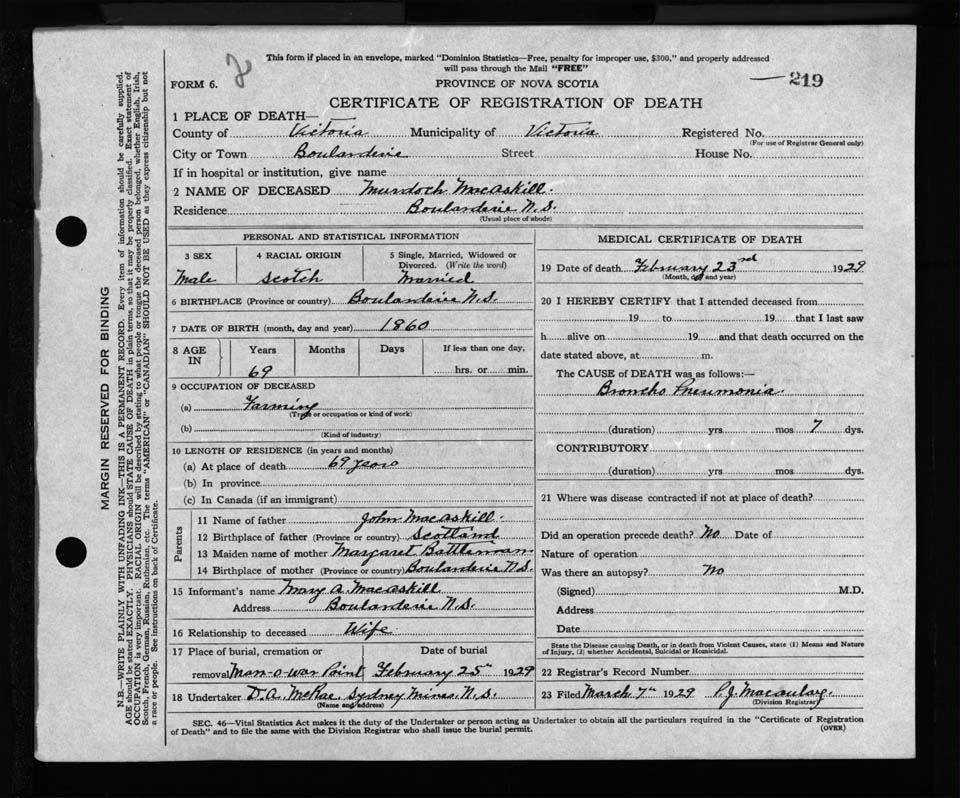 This form if placed in an envelope, marked "Dominion Statistics—Free, penalty for improper use, $300," and properly addressed
will pass through the Mail "FREE"
FORM 6. PROVINCE OF NOVA SCOTIA 219
CERTIFICATE OF REGISTRATION OF DEATH
1 PLACE OF DEATH—
County of Victoria Municipality of Victoria Registered No.
(For use of Registrar General only)
City or Town Boularderie Street House No.
If in hospital or institution, give name
2 NAME OF DECEASED Murdoch MacAskill.
Residence Boularderie N.S.
(Usual place of abode)
PERSONAL AND STATISTICAL INFORMATION
3 SEX 4 RACIAL ORIGIN 5 Single, Married, Widowed or
Divorced. (Write the word)
Male Scotch Married
6 BIRTHPLACE (Province or country) Boularderie N.S.
7 DATE OF BIRTH (month, day and year) 1860
8 AGE IN Years Months Days If less than one day,
69 hrs. or min.
9 OCCUPATION OF DECEASED
(a) Farming
(Trade or occupation or kind of work)
(b)
(Kind of industry)
10 LENGTH OF RESIDENCE (in years and months)
(a) At place of death 69 years
(b) In province
(c) In Canada (if an immigrant)
Parents
11 Name of father John MacAskill.
12 Birthplace of father (Province or country) Scotland
13 Maiden name of mother Margaret
14 Birthplace of mother (Province or country) Boularderie N.S.
15 Informant's name Mary A. MacAskill
Address Boularderie N.S.
16 Relationship to deceased Wife.
17 Place of burial, cremation or Date of burial
removal Man-o-war Point February 25th 1929
18 Undertaker D.A. McRae, Sydney Mines, N.S.
(Name and address)
MEDICAL CERTIFICATE OF DEATH
19 Date of death February 23rd 1929
(Month, day and year)
20 I HEREBY CERTIFY that I attended deceased from
19 to 19 that I last saw
h alive on 19 and that death occurred on the
date stated above, at m.
The CAUSE of DEATH was as follows:—
Broncho Pneumonia.
(duration) yrs mos 7 dys.
CONTRIBUTORY
(duration) yrs mos dys.
21 Where was disease contracted if not at place of death?
Did an operation precede death? No Date of
Nature of operation
Was there an autopsy? No
(Signed) M.D.
Address
Date
State the Disease causing Death, or in death from Violent Causes, state (1) Means and Nature
of Injury, (2) whether Accidental, Suicidal or Homicidal.
22 Registrar's Record Number
23 Filed March 7th 1929 P.J.
(Division Registrar)
SEC. 46—Vital Statistics Act makes it the duty of the Undertaker or person acting as Undertaker to obtain all the particulars required in the "Certificate of Registration
of Death" and to file the same with the Division Registrar who shall issue the burial permit.
(OVER)
MARGIN RESERVED FOR BINDING
N.B.—WRITE PLAINLY WITH UNFADING INK—THIS IS A PERMANENT RECORD. Every item of information should be carefully supplied.
AGE should be stated EXACTLY. PHYSICIANS should STATE CAUSE OF DEATH in plain terms, so that it may be properly classified. Exact statement of
OCCUPATION is very important. RACIAL ORIGIN will be described by stating to what people or tongue the deceased person belonged, whether English, Irish,
Scotch, French, German, Russian, Ruthenian, etc. The terms "AMERICAN" or "CANADIAN" SHOULD NOT BE USED as they express citizenship but not
a race or people. See instructions on back of Certificate.